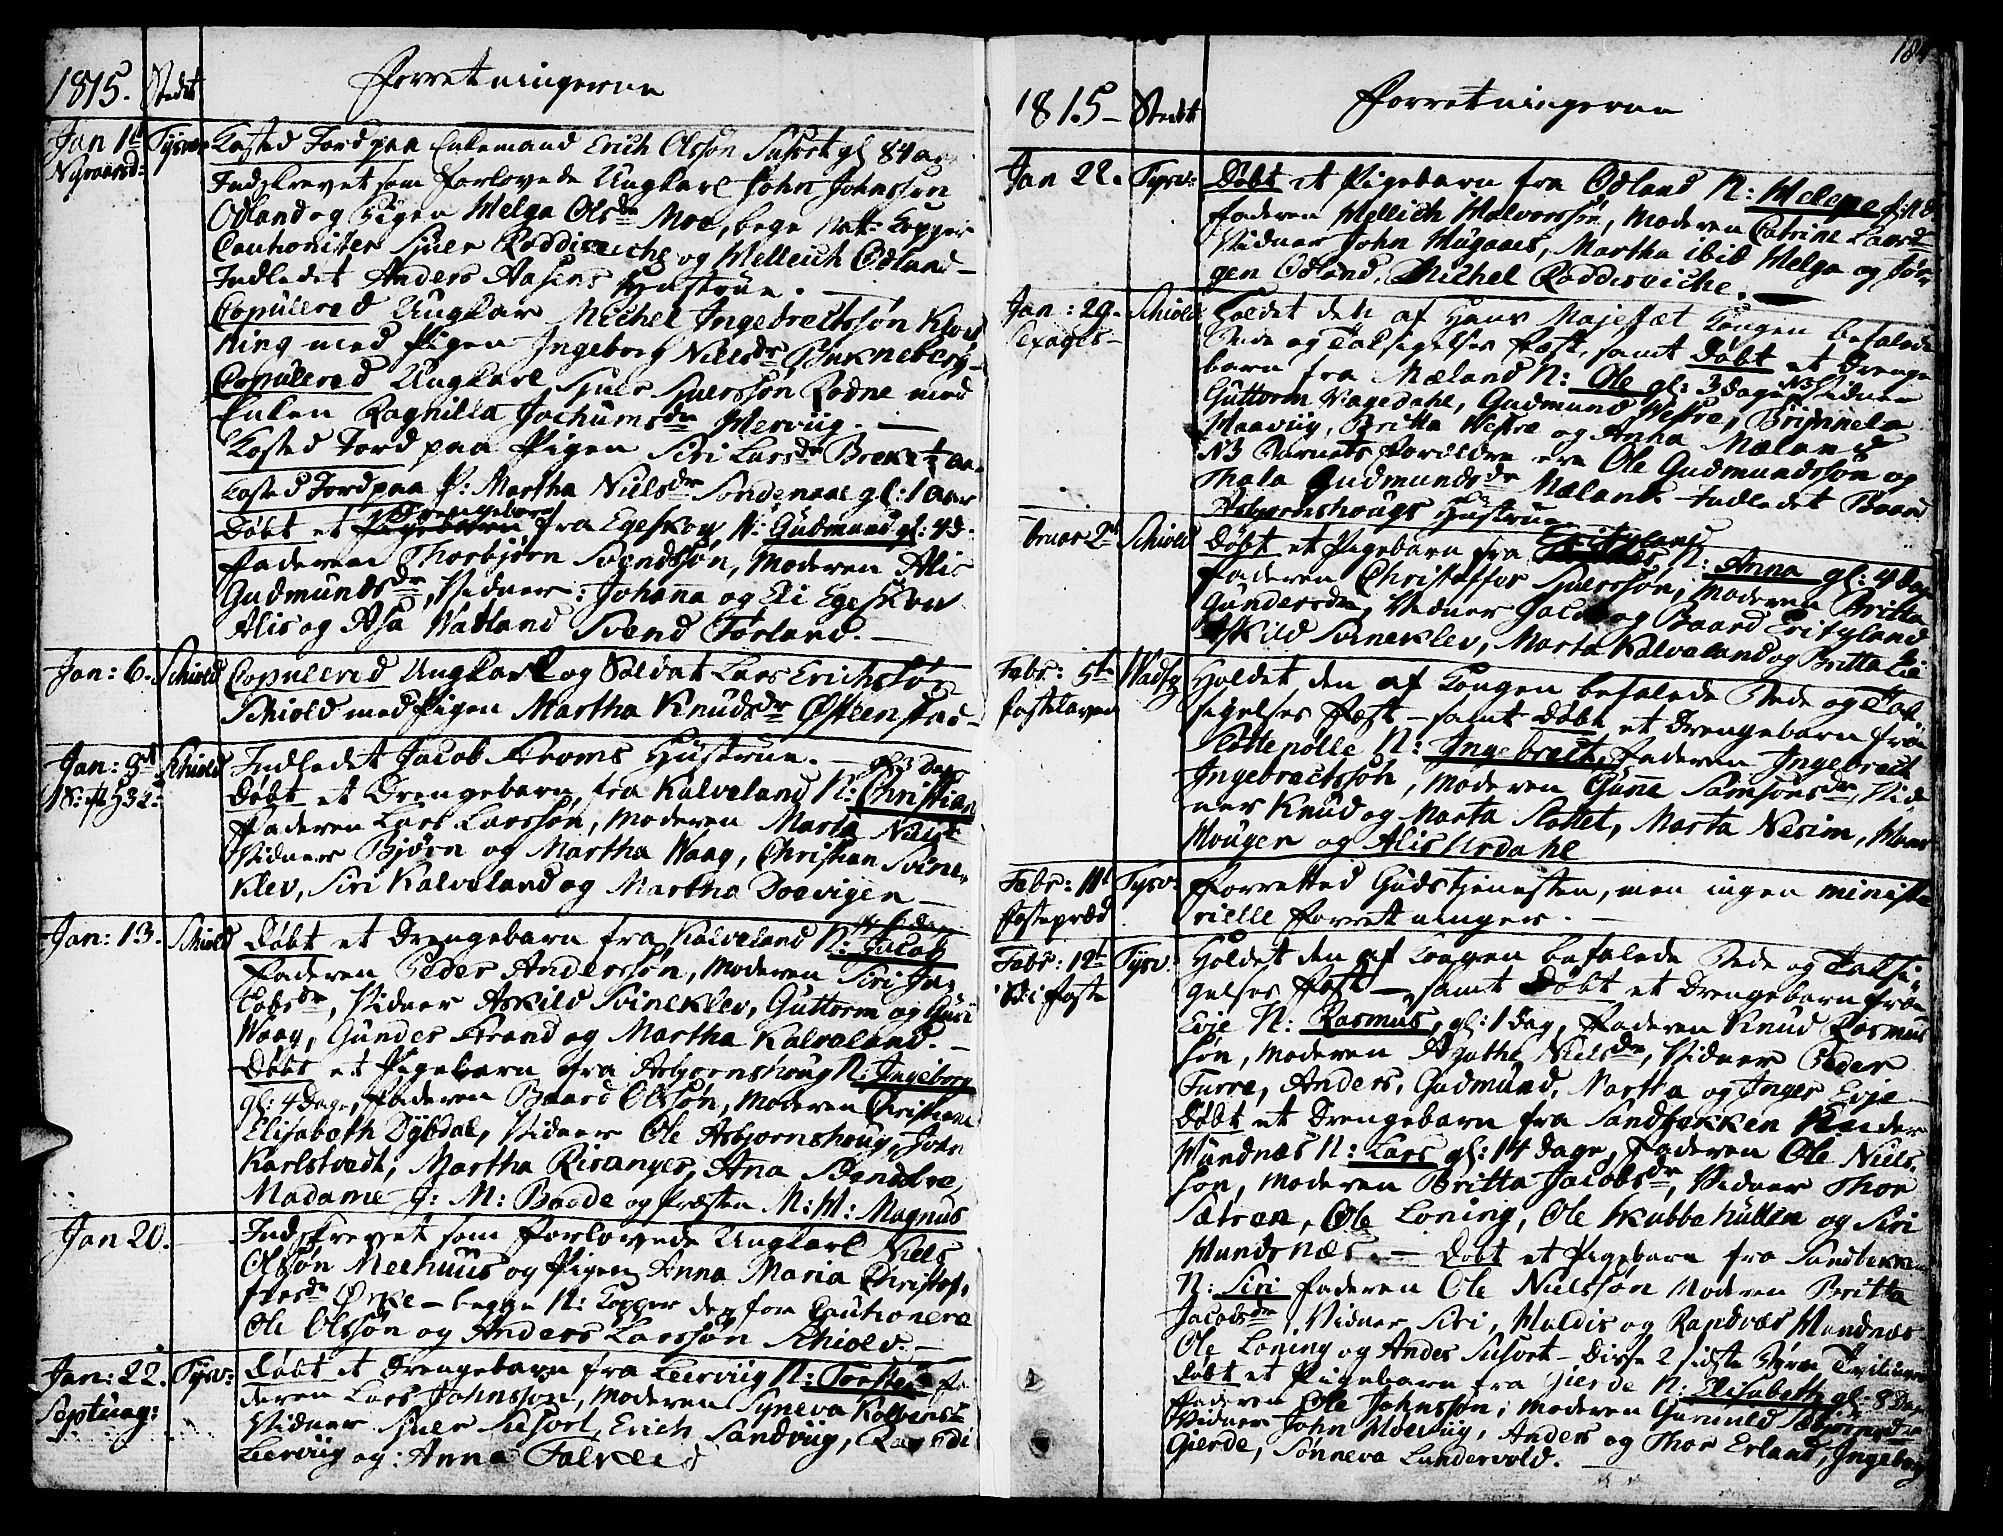 1815. Stedet Forretningerne
Jan 1te Tysvær Kasted Jord paa Enkemand Erich Olssøn Susort gl 84 aar
Nÿeaarsd: Indskrevet som Forlovede Ungkarl John Johnssøn
Odland og Pigen Helga Olsdr Moe, bege Nat: Kopper
Cautionister Sjuer Roddisviche og Hellich Odland –
Indledet Anders Aasens Hustrue. –
Copulered Ungkar Michel Ingebrectssøn
ning med Pigen Ingeborg Nielsdr Bukneberg –
Copulered Ungkarl Sjuer Sjuerssøn Rodne med
Enken Ragnilla Jochumsdr Herviig. –
Kasted Jord paa Pigen Siri Larsdr Brekke ½ aar
Kasted Jord paa P: Martha Nielsdr Søndenaae gl: 1 aar
Døbt et Drengebarn fra Egeskog, N: Gudmund gl: 4 d.
Faderen Thorbjørn Svendssøn, Moderen Alis
Gudmundsdr, Vidner: Johanna og Eli Egeskou
Alis og Asa Vatland Svend Førland. –
Jan: 6. Schiold Copulered Ungkarl og Soldat Lars Erichssøn
Schiold med Pigen Martha Knudsdr Østeenstad –
Jan: Schiold Indledet Jacob Strøms Hustrue. – gl 3 dag
Døbt et Drengebarn, fra Kalveland N: Christian
Faderen Lars Larssøn, Moderen Marta Nielsdr
Vidner Bjørn og Martha Waag, Christian Svine-
klev, Siri Kalveland og Martha Doevigen –
Jan: 13. Schiold Døbt et Drengebarn fra Kalveland N: Jacob
Faderen Peder Anderssøn, Moderen Siri Ja-
cobsdr, Vidner Askild Svineklev, Guttorm og Guri
Waag, Gunder Strand og Martha Kalveland. –
Døbt et Pigebarn fra Asbjørnshoug N: Ingeborg
gl: 4 Dage, Faderen Baard Olssøn, Moderen Christiane
Elisabeth Dÿbdal, Vidner Ole Asbjørnshoug, John
Karlstvedt, Martha Risanger, Ana
Madame J: M: Baade og Præsten N: W: Magnus
Jan 20. Indskrevet som Forlovede Ungkarl Niels
Olssøn Meehuus og Pigen Anna Maria Christof-
fersdr Ørke – begge N: Kopper der for Cautionere
Ole Olssøn og Anders Larssøn Schiold. –
Jan: 22. Tysv: Døbt et Drengebarn fra Leerviig N: Torsten Fa-
Septuag: deren Lars Johnssøn, Moderen Syneva Kolbens
Vidner Sjuer Susort, Erich Sandviig,
Leerviig og: Anna Falkeid
184
1815 – Stedet Forretningerne
Jan 22. Tysv: Døbt et Pigebarn fra Odland N: Helege
Faderen Hellich Halvorssøn, Moderen Catrine Larsdr
Vidner John Hugaaes, Martha ibid Helga og Jør-
gen Odland. Michel Roddisviche.
Jan: 29. Schiold Holdet den af Hans Majestæt Kongen befalede
Sexages – Bede og Taksigelses Fæst, samt Døbt et Drenge
barn fra Mæland N: Ole gl: 3 dage Vidner
Guttorm Vagedahl, Gudmund Westre,
Haaviig, Britta Westre og Anna Mæland
NB Barnets Forældre ere Ole Gudmundssøn og
Thala Gudmundsdr Mæland. Indledet Baard
Asbjørnshougs Hustrue
bruar 2d Schiold Døbt et Pigebarn fra Eritzland N: Anna gl: 4 dag
Faderen Christoffer Sjuerssøn, Moderen Britta
Gundersdr, Vidner og Baard Eritzland
Askild Svineklev, Marta Kalveland og Britta Lie
Febr: 5te Wadsg Holdet den af Kongen befalede Bede og Tak-
fastelaven sigelses Fæst – samt Døbt et Drengebarn fra
Slottepølle N: Ingebrect, Faderen Ingebrect
Ingebractssøn, Moderen Gunne Samsonsdr, Vid-
ner Knud og Marta Slottet, Marta Nesim,
Houger og Alis Urdahl
Febr: 11t Tysv: Forretted Gudstjenesten, men ingen ministe
fastepræd rielle Forretninger. –
Febr: 12t Tysv: Holdet den af Kongen befalede Bede og Taksi-
S: i faste gelses Fæst –, samt Døbt et Drengebarn fra
Evje N: Rasmus, gl: 1 dag, Faderen Knud Rasmus
søn, Moderen Agathe Nielsdr, Vidner Peder
Furre, Anders, Gudmund, Martha og Inger Evje
Døbt et Drengebarn fra Sandbekken under
Mundnæs N: Lars gl: 14 dage, Faderen Ole Niels-
søn, Moderen Britta Jacobsdr, Vidner Thor
Sætren, Ole Loning, Ole Skubbahullen og Siri
Mundsnæs. – Døbt et Pigebarn fra Sandbekken
N: Siri Faderen Ole Nielssøn Moderen Britta
Jacobsdr, Vidner Siri, Maldis og Randvæs Mundnæs
Ole Loning og Andes Susort – Disse 2 sidste Børn Tvilinger
Døbt et Pigebarn fra Gierde N: Elisabeth gl: 8 Dag
Faderen Ole Johnssøn, Moderen Gunnild
Vidner John Hoeviig, Anders og Thor Erland, Ingeborg
Gierde, Sønneva Lundervold. –